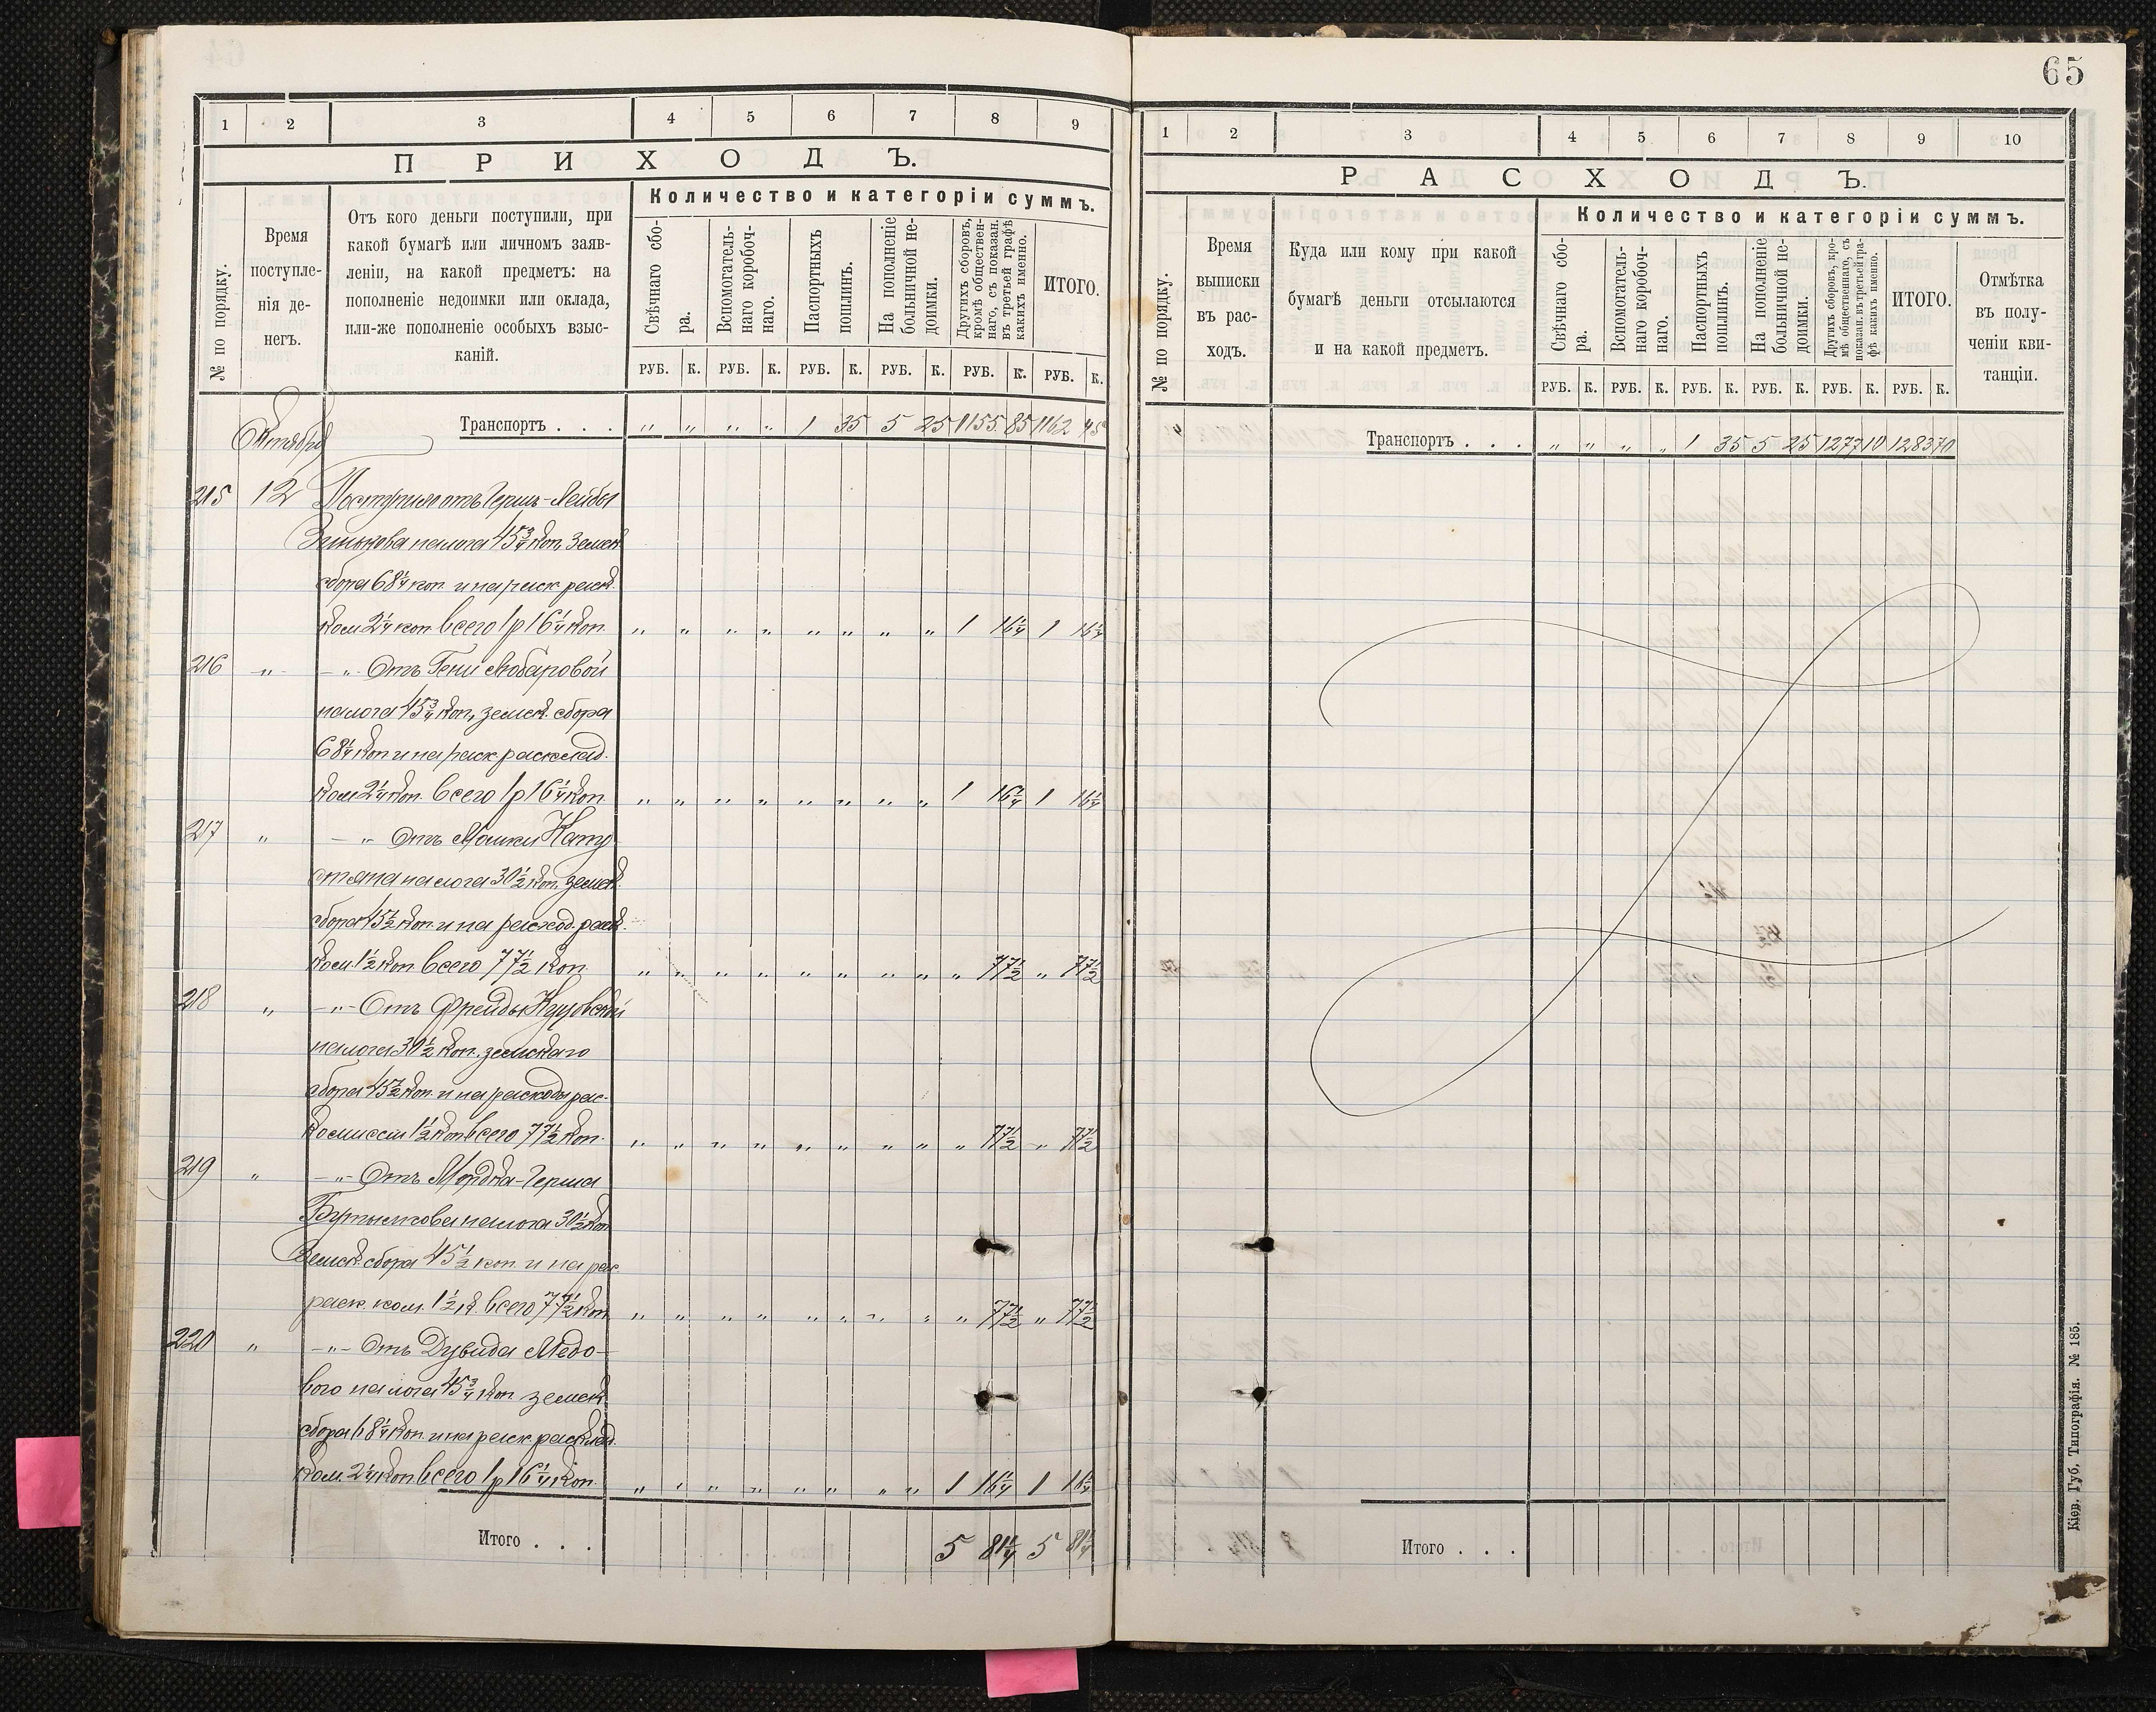 65
1 2 3 4 5 6 7 8 9
ПРИХОДЪ.
№ по порядку.
Время поступле-
нія де-
негъ.
Отъ кого деньги поступили, при
какой бумагѣ или личномъ заяв-
леніи, на какой предметъ: на
пополненіе недоимки или оклада,
или-же пополненіе особыхъ взыс-
каній.
Количество и категоріи суммъ.
Свѣчнаго сбо-
ра.
Вспомогатель-
наго коробоч-
наго.
Паспортныхъ
пошлинъ.
На пополненіе
больничной не-
доимки.
Другихъ сборовъ,
кромѣ обществен-
наго, съ показан.
въ третьей графѣ
какихъ именно.
ИТОГО.
РУБ. К. РУБ. К. РУБ. К. РУБ. К. РУБ. К. РУБ. К.
Октября
Транспортъ . . . „ „ „ „ 1 35 5 25 1155 85 1162 45
215 12 Поступило отъ Герш-Лейбы
Зинькова налога 45 3/4 коп. земск.
сбора 68 1/4 коп. и на раск. раск.
ком 2 1/4 коп. всего 1 р 16 1/4 коп. „ „ „ „ „ „ „ „ 1 16 1/4 1 16 1/4
216 „ — „ — Отъ Гени Любаровой
налога 45 3/4 коп., земск. сбора
68 1/4 коп и на раск расклад.
ком 2 1/4 коп. всего 1 р 16 1/4 коп. „ „ „ „ „ „ „ „ 1 16 1/4 1 16 1/4
217 „ — „ Отъ Мошки Капу-
стяна налога 30 1/2 коп. земск.
сбора 45 1/2 коп. и на расход. раск.
ком. 1 1/2 коп всего 77 1/2 коп. „ „ „ „ „ „ „ „ „ 77 1/2 „ 77 1/2
218 „ — „ — Отъ Фрейды
налога 30 1/2 коп. земскаго
сбора 45 1/2 коп. и на расходы рас-
комиссіи 1 1/2 коп всего 77 1/2 коп. „ „ „ „ „ „ „ „ „ 77 1/2 „ 77 1/2
219 „ — „ — Отъ Мордка-Герша
налога 30 1/2 коп
земск. сбора 45 1/2 коп. и на рас.
раск. ком. 1 1/2 к. всего 77 1/2 коп „ „ „ „ „ „ „ „ „ 77 1/2 „ 77 1/2
220 „ — „ — Отъ Дувида Медо-
вого налога 45 3/4 коп земск.
сбора 68 1/4 коп. и на раск. расклад.
ком. 2 1/4 коп всего 1 р 16 1/4 коп. „ „ „ „ „ „ „ „ 1 16 1/4 1 16 1/4
Итого . . . 5 81 1/4 5 81 1/4
1 2 3 4 5 6 7 8 9 10
РАСХОДЪ.
№ по порядку.
Время
выписки
въ рас-
ходъ.
Куда или кому при какой
бумагѣ деньги отсылаются
и на какой предметъ.
Количество и категоріи суммъ.
Свѣчнаго сбо-
ра.
Вспомогатель-
наго коробоч-
наго.
Паспортныхъ
пошлинъ.
На пополненіе
больничной не-
доимки.
Другихъ сборовъ, кро-
мѣ общественнаго, съ
показан. въ третьей гра-
фѣ какихъ именно.
ИТОГО.
Отмѣтка
въ полу-
ченіи кви-
танціи.
РУБ. К. РУБ. К. РУБ. К. РУБ. К. РУБ. К. РУБ. К.
Транспортъ . . . „ „ „ „ 1 35 5 25 1277 10 1283 70
Итого . . .
Кіев. Губ. Типографія. № 185.